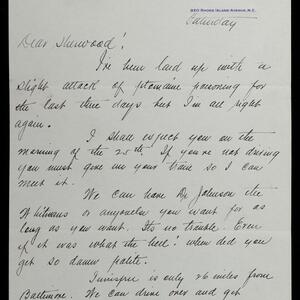 920 Rhode Island Avenue, N.E.
Saturday
Dear Sherwood!
I've been laid up with a
slight attack of ptomaine poisoning for
the last three days but I'm all right
again.
I shall expect you on the
morning of the 25th If you're not driving
you must give me your train so I can
meet it.
We can have Dr Johnson the
Whitmans or anyone else you want for as
long as you want. Its no trouble. Even
if it was what the heck! when did you
get so damn polite.
Innisfree is only 26 miles from
Baltimore. We can drive over and get